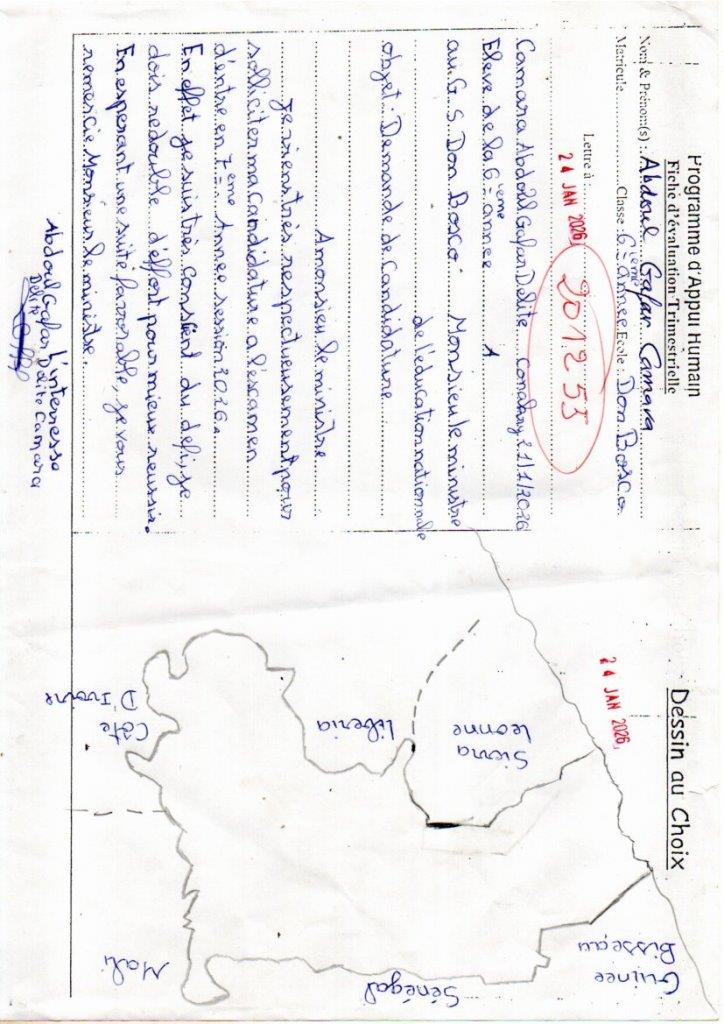 Programme d'Appui Humain
Fiche d'évaluation Trimestrielle
Nom & Prénom(s) : Abdoul Gafar Camara
Matricule Classe : 6ième année École : Don Bosco
Lettre à :
24 JAN 2026
201255
Camara Abdoul Gafar Delite Conakry le 1/1/2026
Eleve de la 6ième année A
au G. S. Don Bosco Monsieur le ministre
de l'éducation nationale
objet : Demande de Candidature
A monsieur le ministre
Je viens très respectueusement pour
solliciter ma Candidature a l'éxamen
d'entre en 7eme Annee session 2026.
En effet je suis très conscient du defi, je
dois redouble d'effort pour mieux reussir.
En esperant une suite favorable, je vous
remercie Monsieur le ministre.
L'interesse
Abdoul Gafar Delite Camara
Delite
Dessin au Choix
24 JAN 2026
Guinee
Bisseau
Sénégal
Mali
Sierra
leonne
liberia
Côte
D'Ivoire